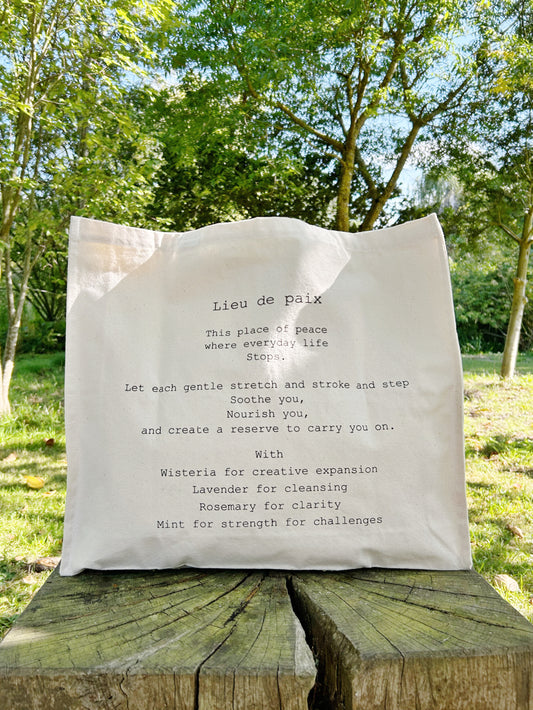 Lieu de paix
This place of peace
where everyday life
Stops.
Let each gentle stretch and stroke and step
Soothe you,
Nourish you,
and create a reserve to carry you on.
With
Wisteria for creative expansion
Lavender for cleansing
Rosemary for clarity
Mint for strength for challenges